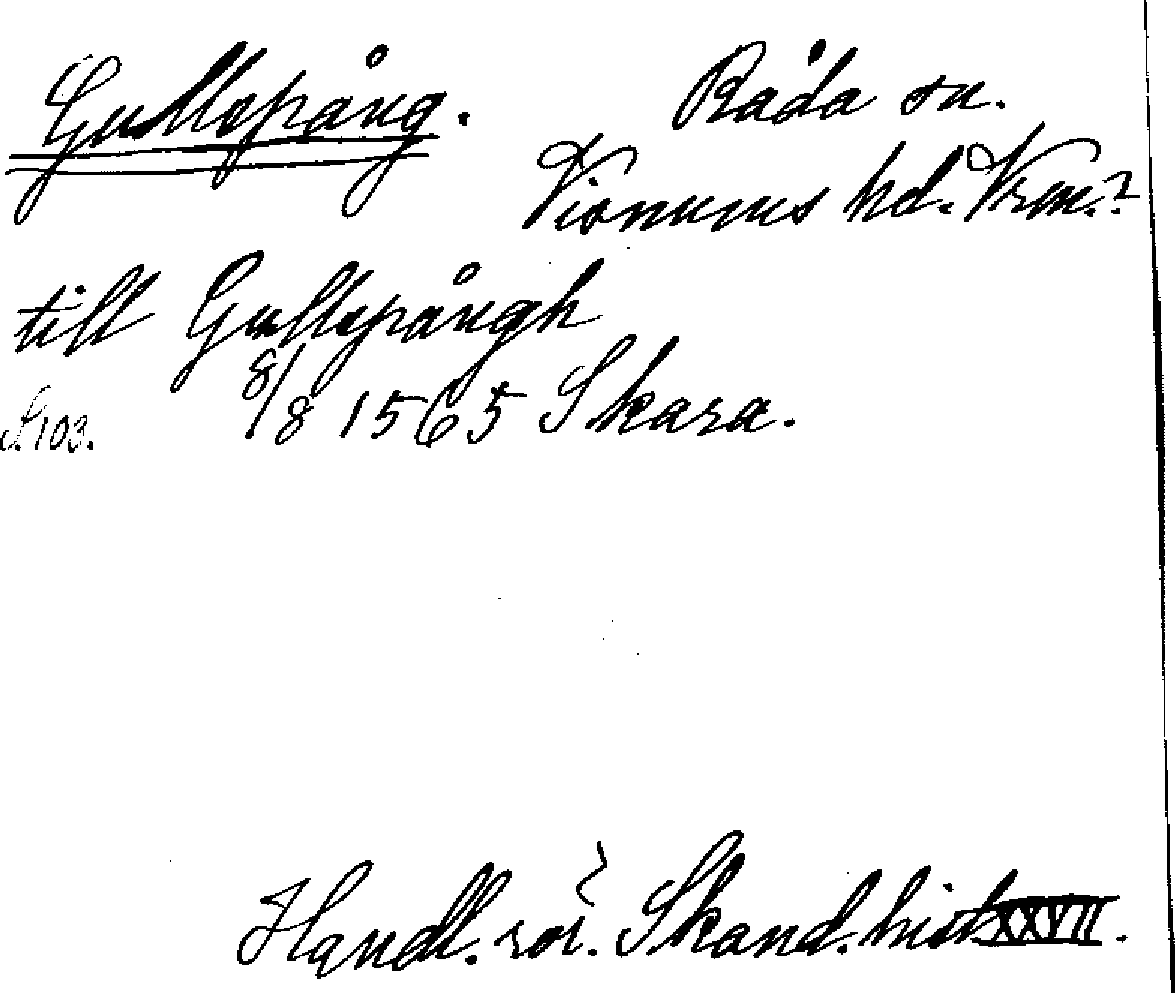 Gullspång. Råda sn.
Visnums hd. Vrm.?
till Gullspångh
S. 103. 8/8 1565 Skara.
Handl. rör. Skand. hist. XXVII.